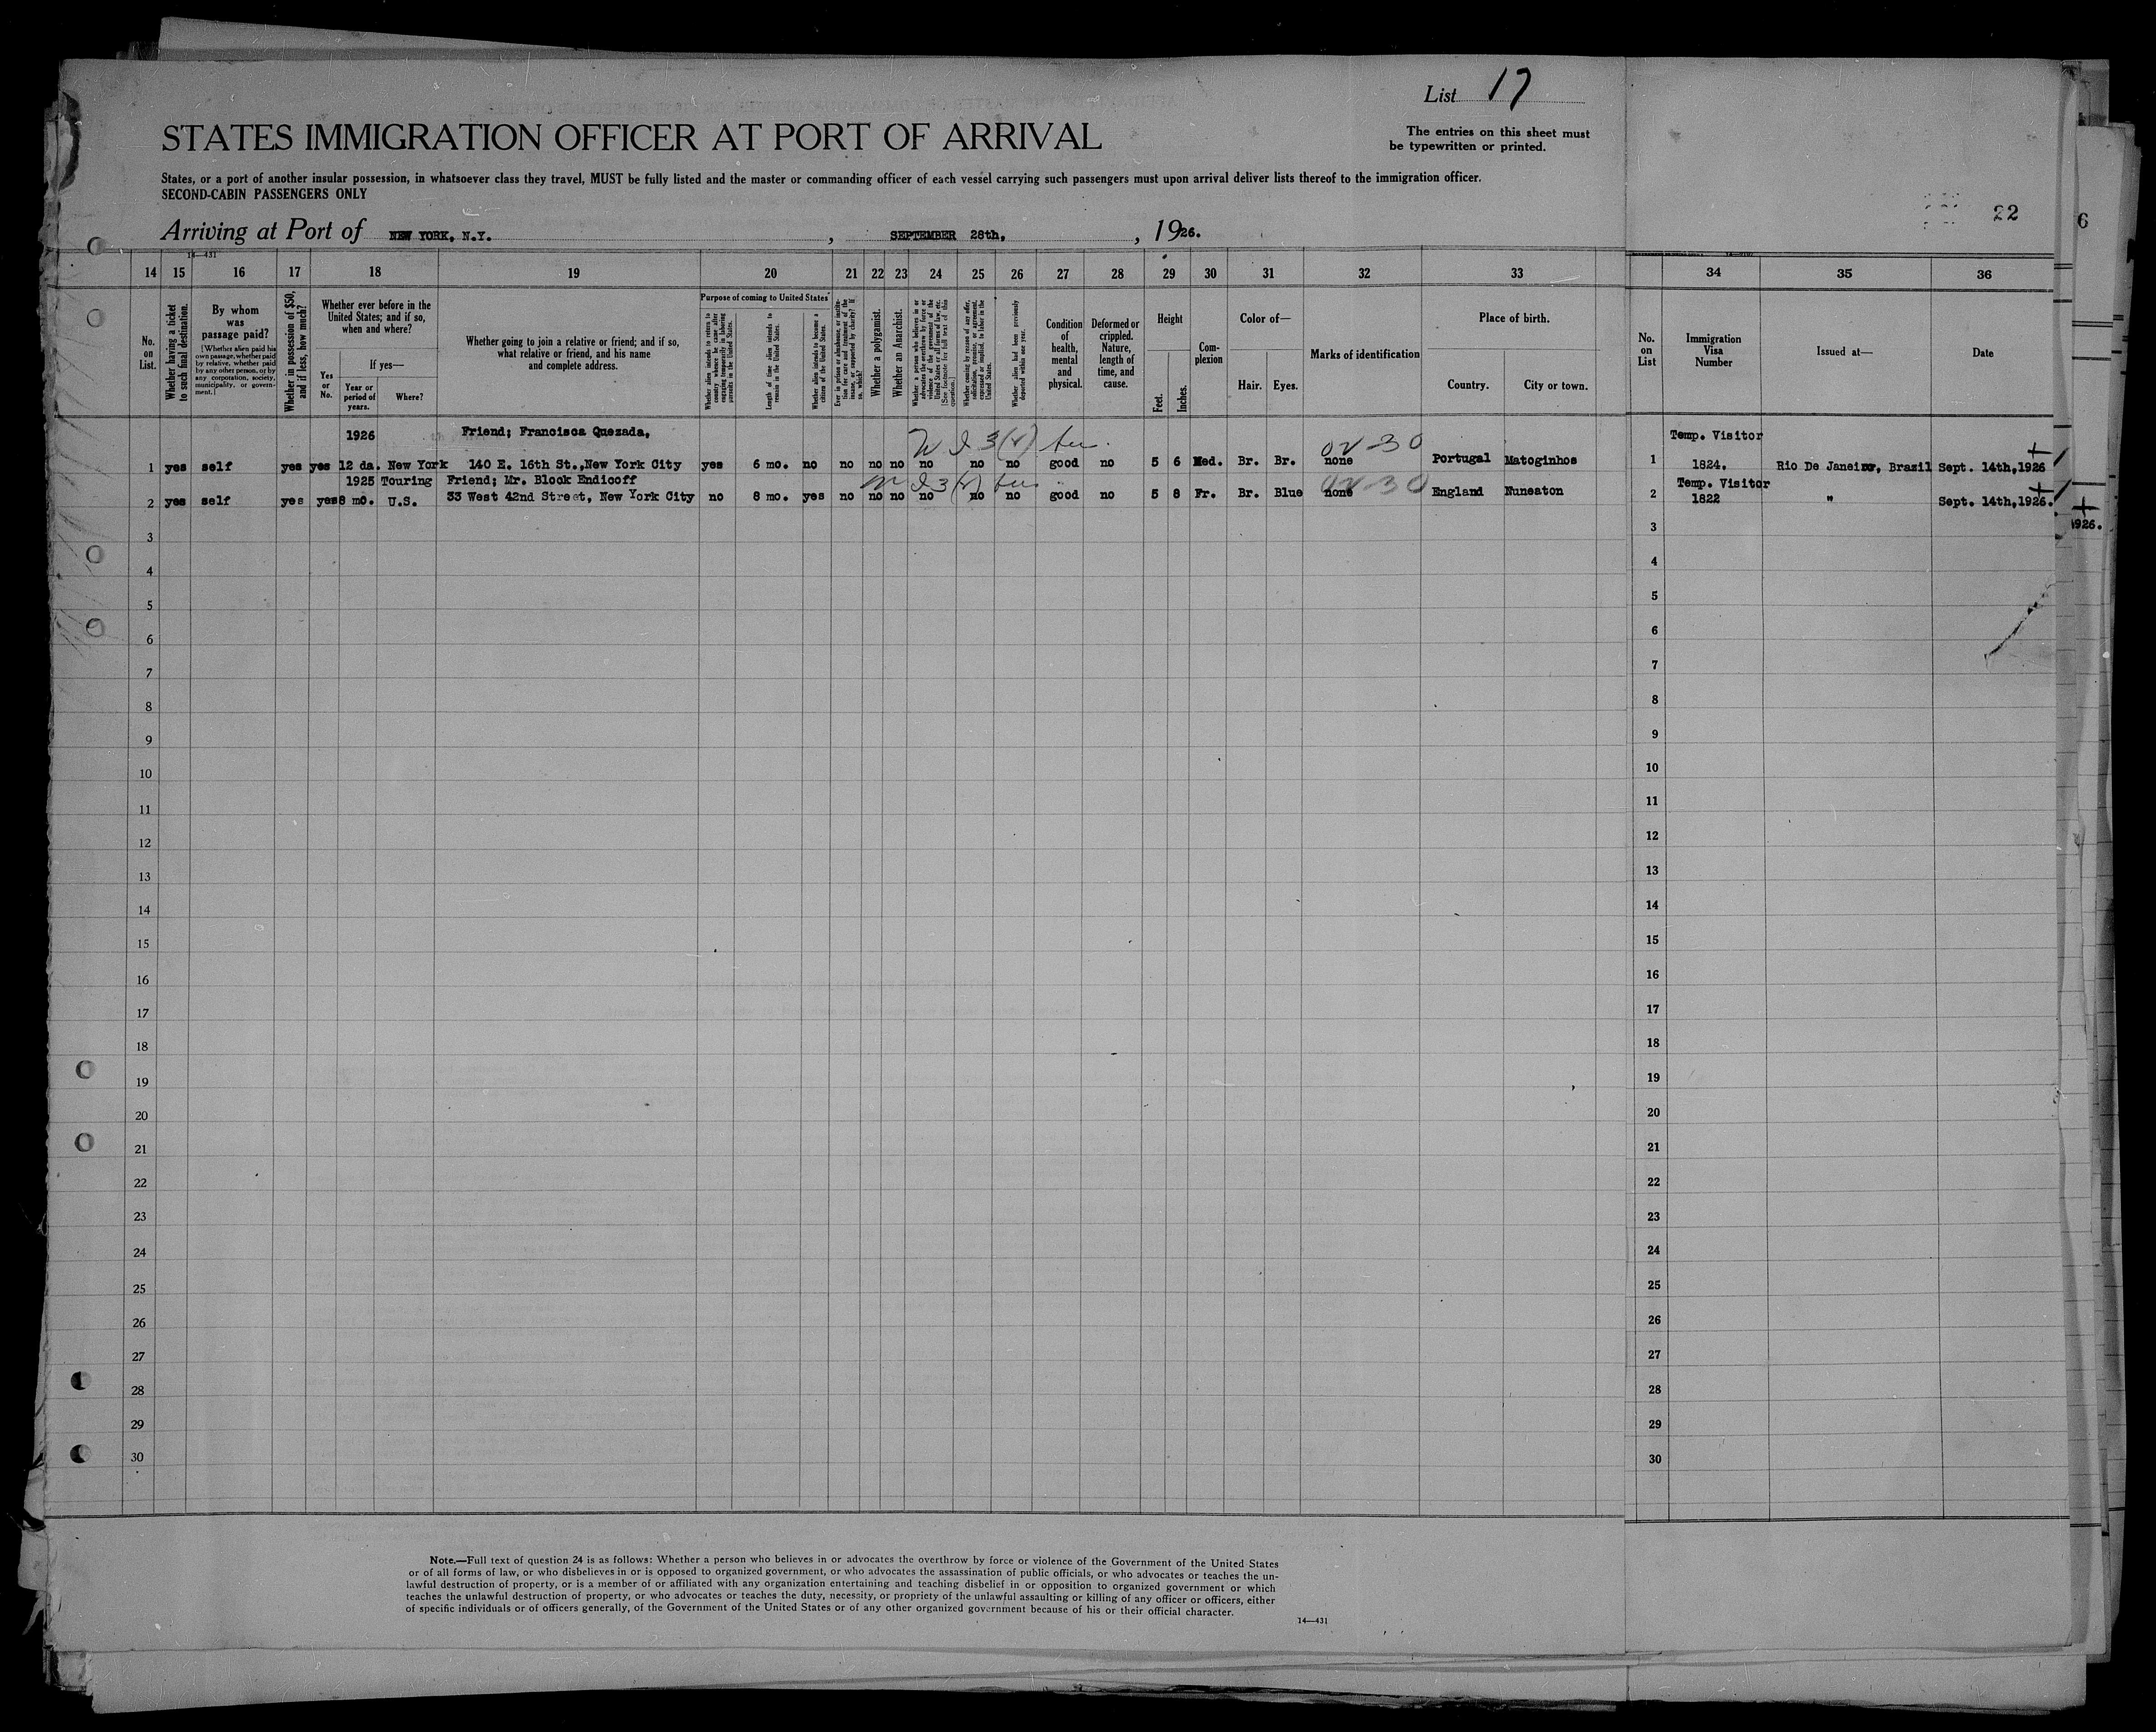 List 17
STATES IMMIGRATION OFFICER AT PORT OF ARRIVAL
The entries on this sheet must
be typewritten or printed.
States, or a port of another insular possession, in whatsoever class they travel, MUST be fully listed and the master or commanding officer of each vessel carrying such passengers must upon arrival deliver lists thereof to the immigration officer.
SECOND-CABIN PASSENGERS ONLY
22
6
Arriving at Port of NEW YORK, N.Y. , SEPTEMBER 28th, , 1926.
14—431
14 15 16 17 18 19 20 21 22 23 24 25 26 27 28 29 30 31 32 33 34 35 36
No. on List.
Whether having a ticket to such final destination.
By whom was passage paid?
[Whether alien paid his own passage, whether paid by relative, whether paid by any other person, or by any corporation, society, municipality, or government.]
Whether in possession of $50, and if less, how much?
Whether ever before in the United States; and if so, when and where?
If yes—
Yes or No.
Year or period of years.
Where?
Whether going to join a relative or friend; and if so, what relative or friend, and his name and complete address.
Purpose of coming to United States
Whether alien intends to return to country whence he came after engaging temporarily in laboring pursuits in the United States.
Length of time alien intends to remain in the United States.
Whether alien intends to become a citizen of the United States.
Ever in prison or almshouse, or institution for care and treatment of the insane, or supported by charity? If so, which?
Whether a polygamist.
Whether an Anarchist.
Whether a person who believes in or advocates the overthrow by force or violence of the Government of the United States or all forms of law, etc. [See footnote for full text of this question.]
Whether coming by reason of any offer, solicitation, promise, or agreement, expressed or implied, to labor in the United States.
Whether alien had been previously deported within one year.
Condition of health, mental and physical.
Deformed or crippled. Nature, length of time, and cause.
Height
Feet. Inches.
Complexion
Color of—
Hair. Eyes.
Marks of identification
Place of birth.
Country. City or town.
No. on List
Immigration Visa Number
Issued at—
Date
1926 Friend; Francisca Quezada, Temp. Visitor
1 yes self yes yes 12 da. New York 140 E. 16th St.,New York City yes 6 mo. no no no no no no no good no 5 6 Med. Br. Br. none Portugal Matoginhos 1 1824. Rio De Janeiro, Brazil Sept. 14th,1926
1925 Touring Friend; Mr. Block Endicoff Temp. Visitor
2 yes self yes yes 8 mo. U.S. 33 West 42nd Street, New York City no 8 mo. yes no no no no no no good no 5 8 Fr. Br. Blue none England Nuneaton 2 1822 " Sept. 14th,1926.
1926.
3 3
4 4
5 5
6 6
7 7
8 8
9 9
10 10
11 11
12 12
13 13
14 14
15 15
16 16
17 17
18 18
19 19
20 20
21 21
22 22
23 23
24 24
25 25
26 26
27 27
28 28
29 29
30 30
Note.—Full text of question 24 is as follows: Whether a person who believes in or advocates the overthrow by force or violence of the Government of the United States
or of all forms of law, or who disbelieves in or is opposed to organized government, or who advocates the assassination of public officials, or who advocates or teaches the un-
lawful destruction of property, or is a member of or affiliated with any organization entertaining and teaching disbelief in or opposition to organized government or which
teaches the unlawful destruction of property, or who advocates or teaches the duty, necessity, or propriety of the unlawful assaulting or killing of any officer or officers, either
of specific individuals or of officers generally, of the Government of the United States or of any other organized government because of his or their official character.
14—431